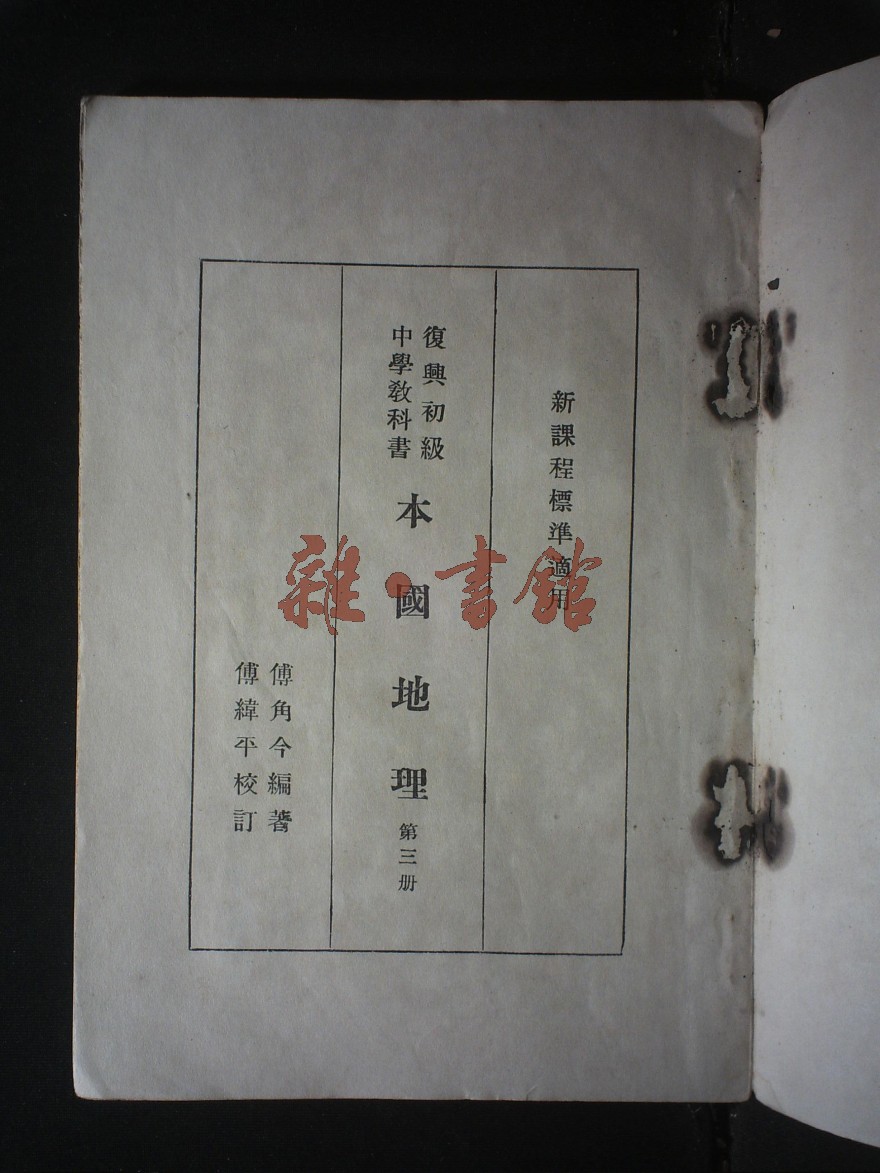 新課程標準適用
復興初級
中學教科書
本國地理 第三册
傅角今編著
傅緯平校訂
雜·書館